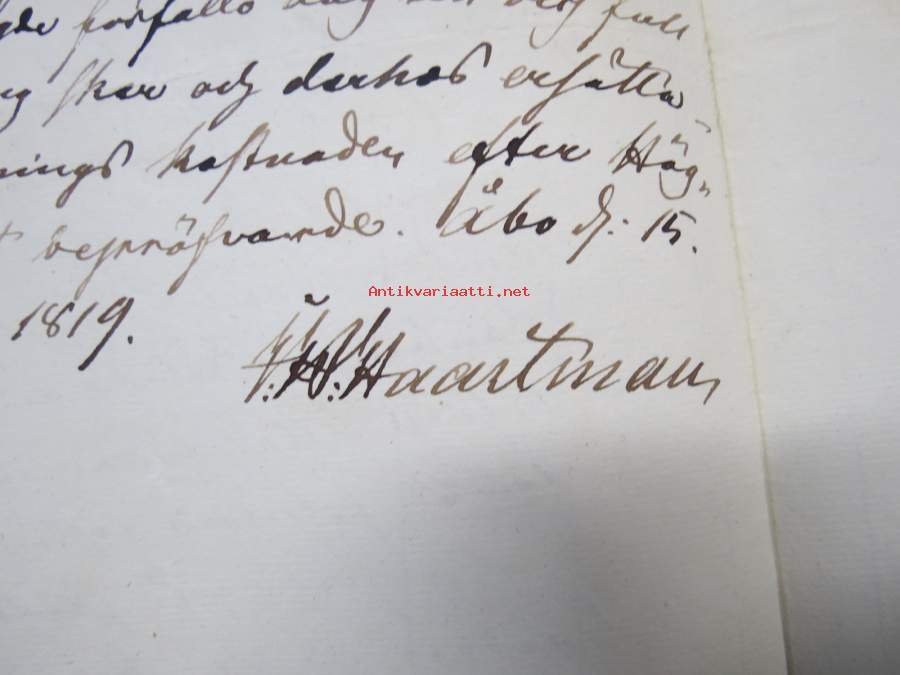 förfallo dag
sker och derhos ersätta
nings kostnaden efter Hög-
bepröfvande. Åbo d: 15.
Antikvariaatti.net
1819.
Haartman